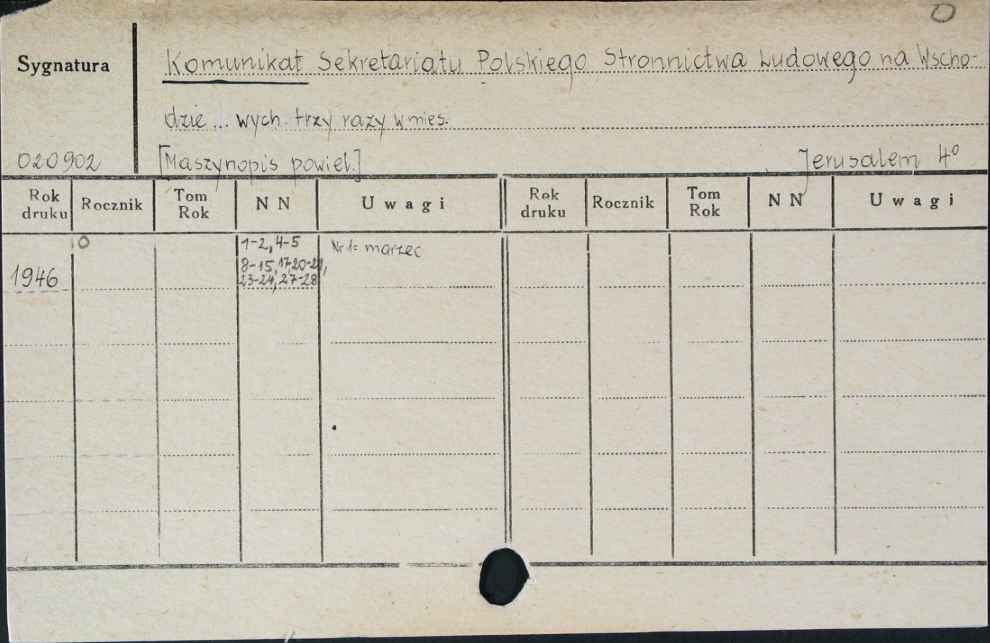 0
Sygnatura
Komunikat Sekretariatu Polskiego Stronnictwa Ludowego na Wscho-
dzie ... wych. trzy razy w mies.
020902 [Maszynopis powiel.] Jerusalem 4°
Rok druku Rocznik Tom Rok N N Uwagi Rok druku Rocznik Tom Rok N N Uwagi
0 1-2, 4-5 Nr 1= marzec
8-15, 17, 20-21,
1946 23-24, 27-28